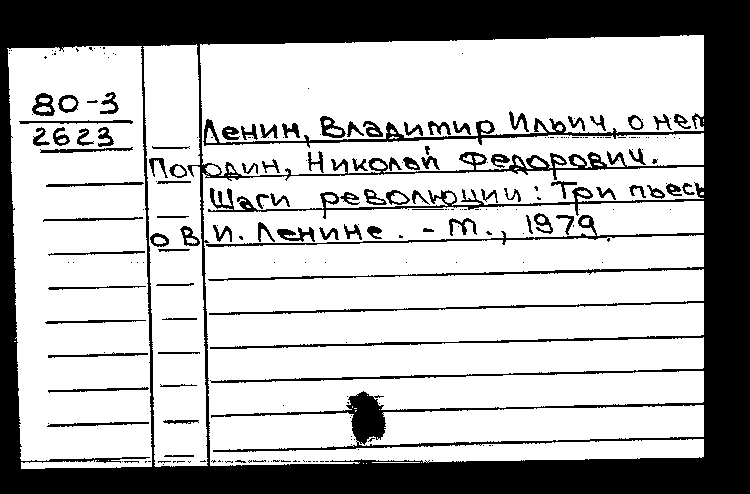 80-3
2623
Ленин, Владимир Ильич, о нем
Погодин, Николай Федорович.
Шаги революции: Три пьесы
о В.И. Ленине. - М., 1979.